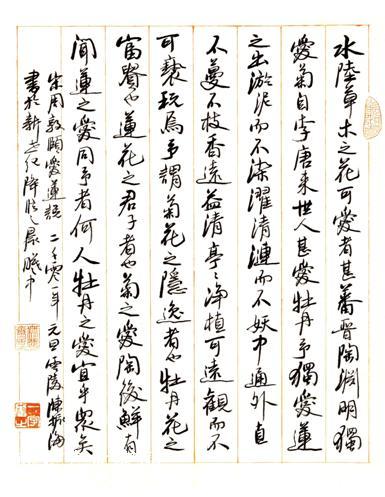 水陸草木之花可愛者甚蕃晉陶淵明獨
愛菊自李唐来世人甚愛牡丹予獨愛蓮
之出淤泥而不染濯清漣而不妖中通外直
不蔓不枝香遠益清亭〻淨植可遠觀而不
可褻玩焉予謂菊花之隱逸者也牡丹花之
富貴也蓮花之君子者也菊之愛陶後鮮有
聞蓮之愛同予者何人牡丹之愛宜乎衆矣
宋周敦頤愛蓮說 二千零一年元旦陳振海
書於新世纪降临之晨曦中